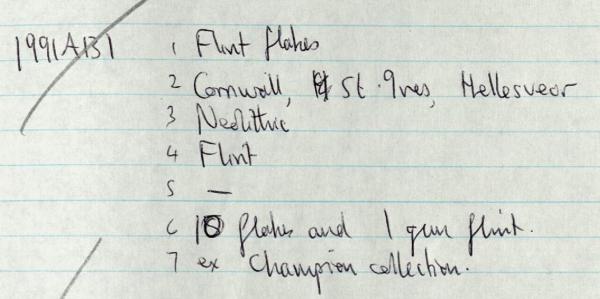 1991A131 1 Flint flakes
2 Cornwall, St. Ives, Hellesveor
3 Neolithic
4 Flint
5 —
6 10 flakes and 1 gun flint.
7 ex Champion collection.